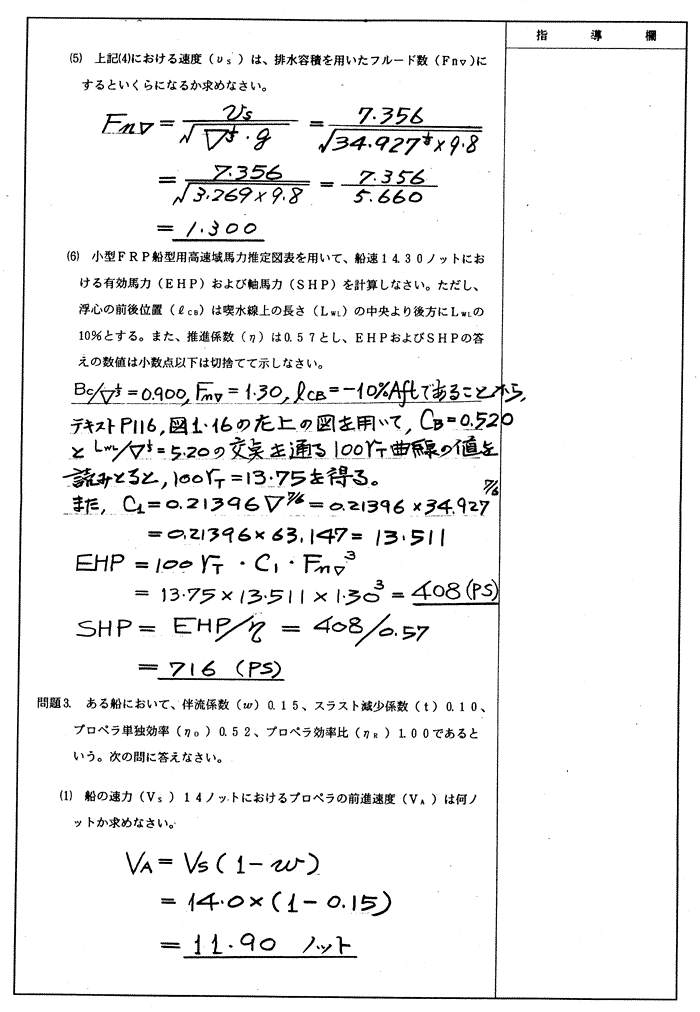 指導欄
(5) 上記(4)における速度（υs）は、排水容積を用いたフルード数（Fn▽）に
するといくらになるか求めなさい。
Fn▽ = υs/√(▽^⅓・g) = 7.356/√(34.927^⅓×9.8)
= 7.356/√(3.269×9.8) = 7.356/5.660
= 1.300
(6) 小型ＦＲＰ船型用高速域馬力推定図表を用いて、船速14.30ノットにお
ける有効馬力（ＥＨＰ）および軸馬力（ＳＨＰ）を計算しなさい。ただし、
浮心の前後位置（ℓCB）は喫水線上の長さ（LWL）の中央より後方にLWLの
10％とする。また、推進係数（η）は0.57とし、ＥＨＰおよびＳＨＰの答
えの数値は小数点以下は切捨てて示しなさい。
Bc/▽^⅓=0.900, Fn▽=1.30, ℓCB=-10%Aftであることから,
テキストP116,図1・16の左上の図を用いて, CB=0.520
と LWL/▽^⅓=5.20の交点を通る100γT曲線の値を
読みとると,100γT=13.75を得る。
また, C1=0.21396▽^7/6=0.21396×34.927^7/6
=0.21396×63.147=13.511
EHP=100γT・C1・Fn▽³
=13.75×13.511×1.30³=408(PS)
SHP=EHP/η=408/0.57
=716 (PS)
問題3. ある船において、伴流係数（w）0.15、スラスト減少係数（t）0.10、
プロペラ単独効率（ηO）0.52、プロペラ効率比（ηR）1.00であると
いう。次の問に答えなさい。
(1) 船の速力（Vs）14ノットにおけるプロペラの前進速度（VA）は何ノ
ットか求めなさい。
VA=Vs(1-w)
=14.0×(1-0.15)
=11.90 ノット